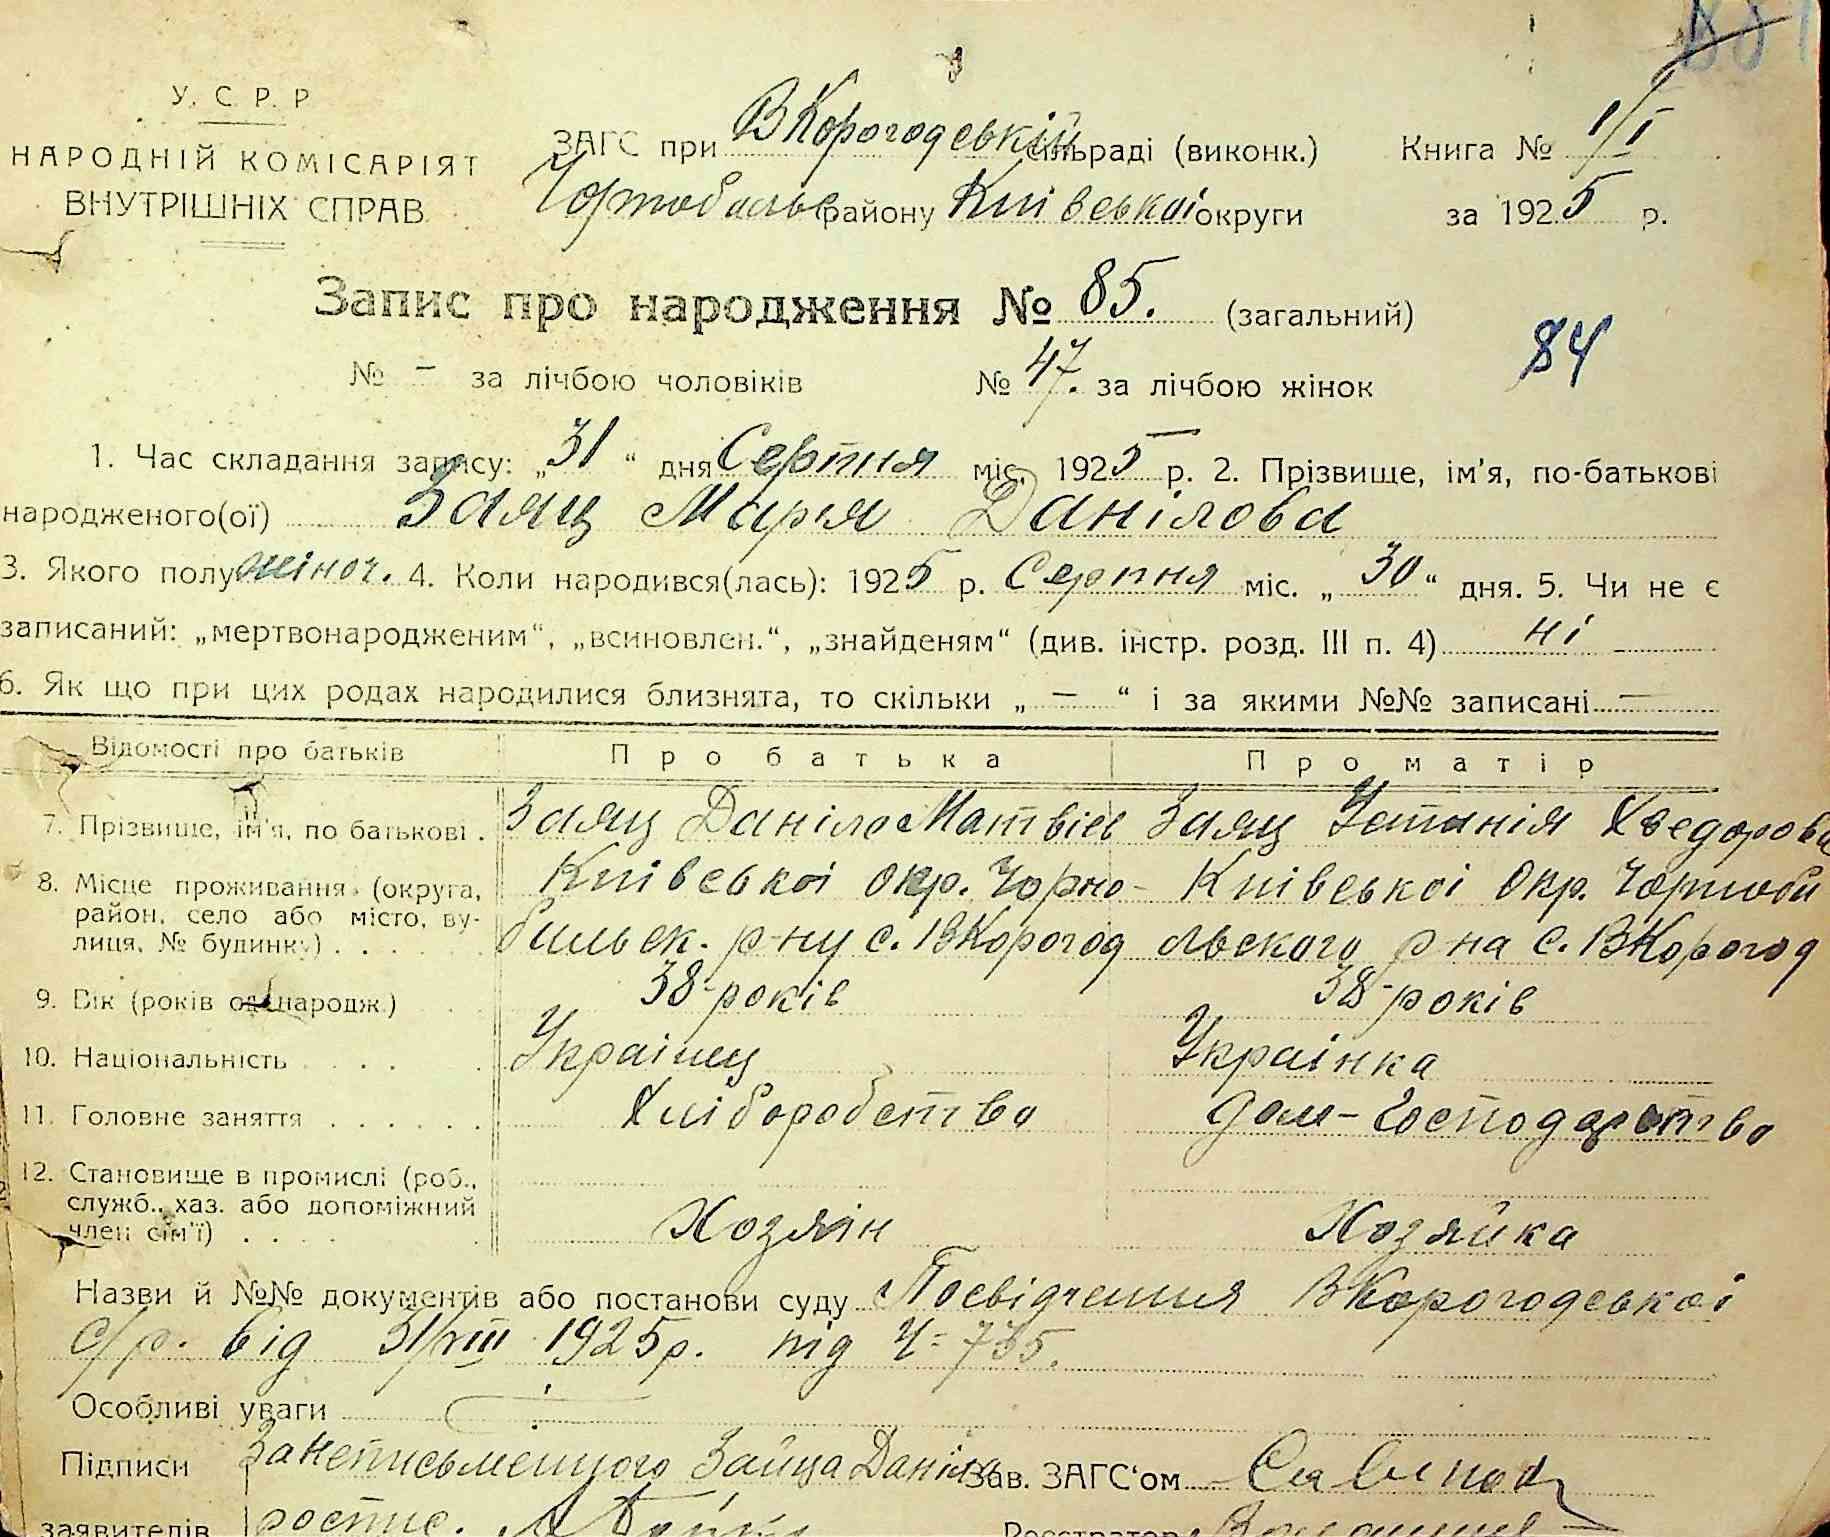 У. С. Р. Р
НАРОДНІЙ КОМІСАРІЯТ
ВНУТРІШНІХ СПРАВ
ЗАГС при ВКорогодській сільраді (виконк.) Книга № 1/I
району Київської округи за 1925 р.
Запис про народження № 85. (загальний)
84
№ – за лічбою чоловіків № 47. за лічбою жінок
1. Час складання запису: „31“ дня Серпня міс. 1925 р. 2. Прізвище, ім'я, по-батькові
народженого(ої) Заяц Марья Данілова
3. Якого полу жіноч. 4. Коли народився(лась): 1925 р. Серпня міс. „30“ дня. 5. Чи не є
записаний: „мертвонародженим“, „всиновлен.“, „знайденям“ (див. інстр. розд. III п. 4) ні
6. Як що при цих родах народилися близнята, то скільки „ — “ і за якими №№ записані —
Відомості про батьків Про батька Про матір
7. Прізвище, ім'я, по батькові . Заяц Даніло Матвієв Заяц Устинія Хведорова
8. Місце проживання (округа, район, село або місто, вулиця, № будинку) . . . Київської окр. Чорно-
бильск. р-ну с. ВКорогод
Київської Окр. Чорноби
льского р на с. ВКорогод
9. Вік (років од народж.) 38-років 38-років
10. Національність . . . . Українец Українка
11. Головне заняття . . . . . . Хліборобство Дом-Господарство
12. Становище в промислі (роб., служб., хаз. або допоміжний член сім'ї) . . . . Хозяїн Хозяйка
Назви й №№ документів або постанови суду Посвідчення ВКорогодської
с/р. від 31/VIII 1925р. під Ч= 735.
Особливі уваги
Підписи За неписьменного Зайца Даніла Зав. ЗАГС'ом
заявителів роспис. Реєстратор